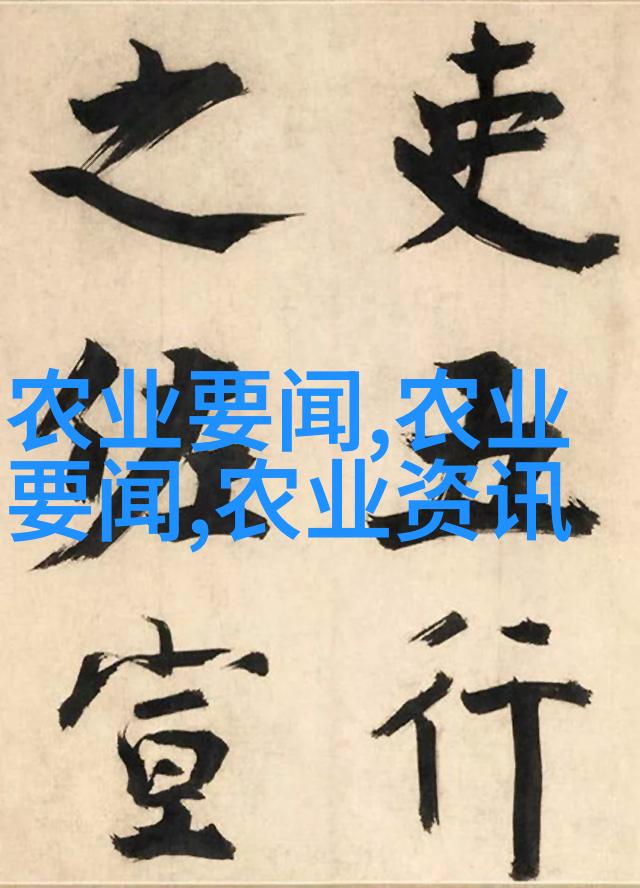 农业要闻,农业
要闻,农业资讯
吏行
之宣